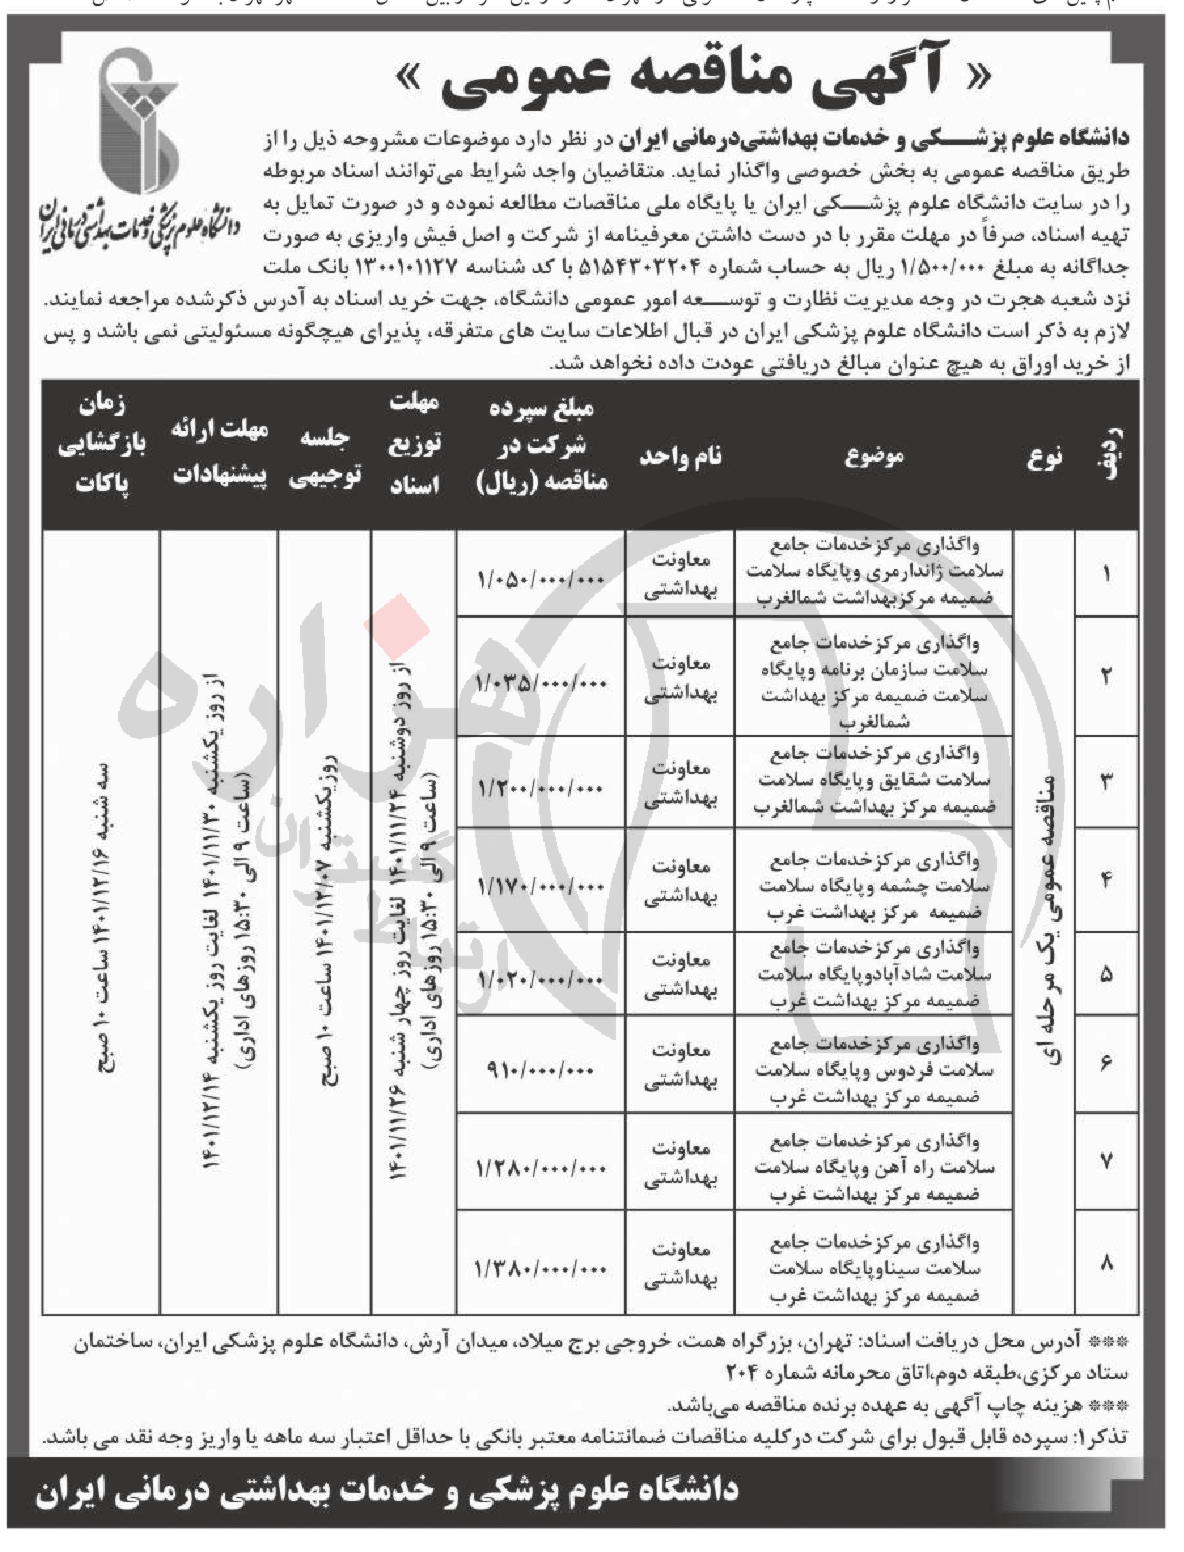 « آگهی مناقصه عمومی »
دانشگاه علوم پزشکی و خدمات بهداشتی درمانی ایران
دانشگاه علوم پزشکی و خدمات بهداشتی‌درمانی ایران در نظر دارد موضوعات مشروحه ذیل را از
طریق مناقصه عمومی به بخش خصوصی واگذار نماید. متقاضیان واجد شرایط می‌توانند اسناد مربوطه
را در سایت دانشگاه علوم پزشکی ایران یا پایگاه ملی مناقصات مطالعه نموده و در صورت تمایل به
تهیه اسناد، صرفاً در مهلت مقرر با در دست داشتن معرفینامه از شرکت و اصل فیش واریزی به صورت
جداگانه به مبلغ ۱/۵۰۰/۰۰۰ ریال به حساب شماره ۵۱۵۴۳۰۳۲۰۴ با کد شناسه ۱۳۰۰۱۰۱۱۲۷ بانک ملت
نزد شعبه هجرت در وجه مدیریت نظارت و توسعه امور عمومی دانشگاه، جهت خرید اسناد به آدرس ذکرشده مراجعه نمایند.
لازم به ذکر است دانشگاه علوم پزشکی ایران در قبال اطلاعات سایت های متفرقه، پذیرای هیچگونه مسئولیتی نمی باشد و پس
از خرید اوراق به هیچ عنوان مبالغ دریافتی عودت داده نخواهد شد.
ردیف
نوع
موضوع
نام واحد
مبلغ سپرده
شرکت در
مناقصه (ریال)
مهلت
توزیع
اسناد
جلسه
توجیهی
مهلت ارائه
پیشنهادات
زمان
بازگشایی
پاکات
۱
واگذاری مرکزخدمات جامع
سلامت ژاندارمری وپایگاه سلامت
ضمیمه مرکزبهداشت شمالغرب
معاونت
بهداشتی
۱/۰۵۰/۰۰۰/۰۰۰
۲
واگذاری مرکزخدمات جامع
سلامت سازمان برنامه وپایگاه
سلامت ضمیمه مرکز بهداشت
شمالغرب
معاونت
بهداشتی
۱/۰۳۵/۰۰۰/۰۰۰
۳
واگذاری مرکزخدمات جامع
سلامت شقایق وپایگاه سلامت
ضمیمه مرکز بهداشت شمالغرب
معاونت
بهداشتی
۱/۲۰۰/۰۰۰/۰۰۰
۴
واگذاری مرکزخدمات جامع
سلامت چشمه وپایگاه سلامت
ضمیمه مرکز بهداشت غرب
معاونت
بهداشتی
۱/۱۷۰/۰۰۰/۰۰۰
۵
واگذاری مرکزخدمات جامع
سلامت شادآبادوپایگاه سلامت
ضمیمه مرکز بهداشت غرب
معاونت
بهداشتی
۱/۰۲۰/۰۰۰/۰۰۰
۶
واگذاری مرکزخدمات جامع
سلامت فردوس وپایگاه سلامت
ضمیمه مرکز بهداشت غرب
معاونت
بهداشتی
۹۱۰/۰۰۰/۰۰۰
۷
واگذاری مرکزخدمات جامع
سلامت راه آهن وپایگاه سلامت
ضمیمه مرکز بهداشت غرب
معاونت
بهداشتی
۱/۲۸۰/۰۰۰/۰۰۰
۸
واگذاری مرکزخدمات جامع
سلامت سیناوپایگاه سلامت
ضمیمه مرکز بهداشت غرب
معاونت
بهداشتی
۱/۳۸۰/۰۰۰/۰۰۰
مناقصه عمومی یک مرحله ای
از روز دوشنبه ۱۴۰۱/۱۱/۲۴ لغایت روز چهار شنبه ۱۴۰۱/۱۱/۲۶
(ساعت ۹ الی ۱۵:۳۰ روزهای اداری)
روز یکشنبه ۱۴۰۱/۱۲/۰۷ ساعت ۱۰ صبح
از روز یکشنبه ۱۴۰۱/۱۱/۳۰ لغایت روز یکشنبه ۱۴۰۱/۱۲/۱۴
(ساعت ۹ الی ۱۵:۳۰ روزهای اداری)
سه شنبه ۱۴۰۱/۱۲/۱۶ ساعت ۱۰ صبح
هزاره
گستران
ارتباط
*** آدرس محل دریافت اسناد: تهران، بزرگراه همت، خروجی برج میلاد، میدان آرش، دانشگاه علوم پزشکی ایران، ساختمان
ستاد مرکزی،طبقه دوم،اتاق محرمانه شماره ۲۰۴
*** هزینه چاپ آگهی به عهده برنده مناقصه می‌باشد.
تذکر۱: سپرده قابل قبول برای شرکت درکلیه مناقصات ضمانتنامه معتبر بانکی با حداقل اعتبار سه ماهه یا واریز وجه نقد می باشد.
دانشگاه علوم پزشکی و خدمات بهداشتی درمانی ایران